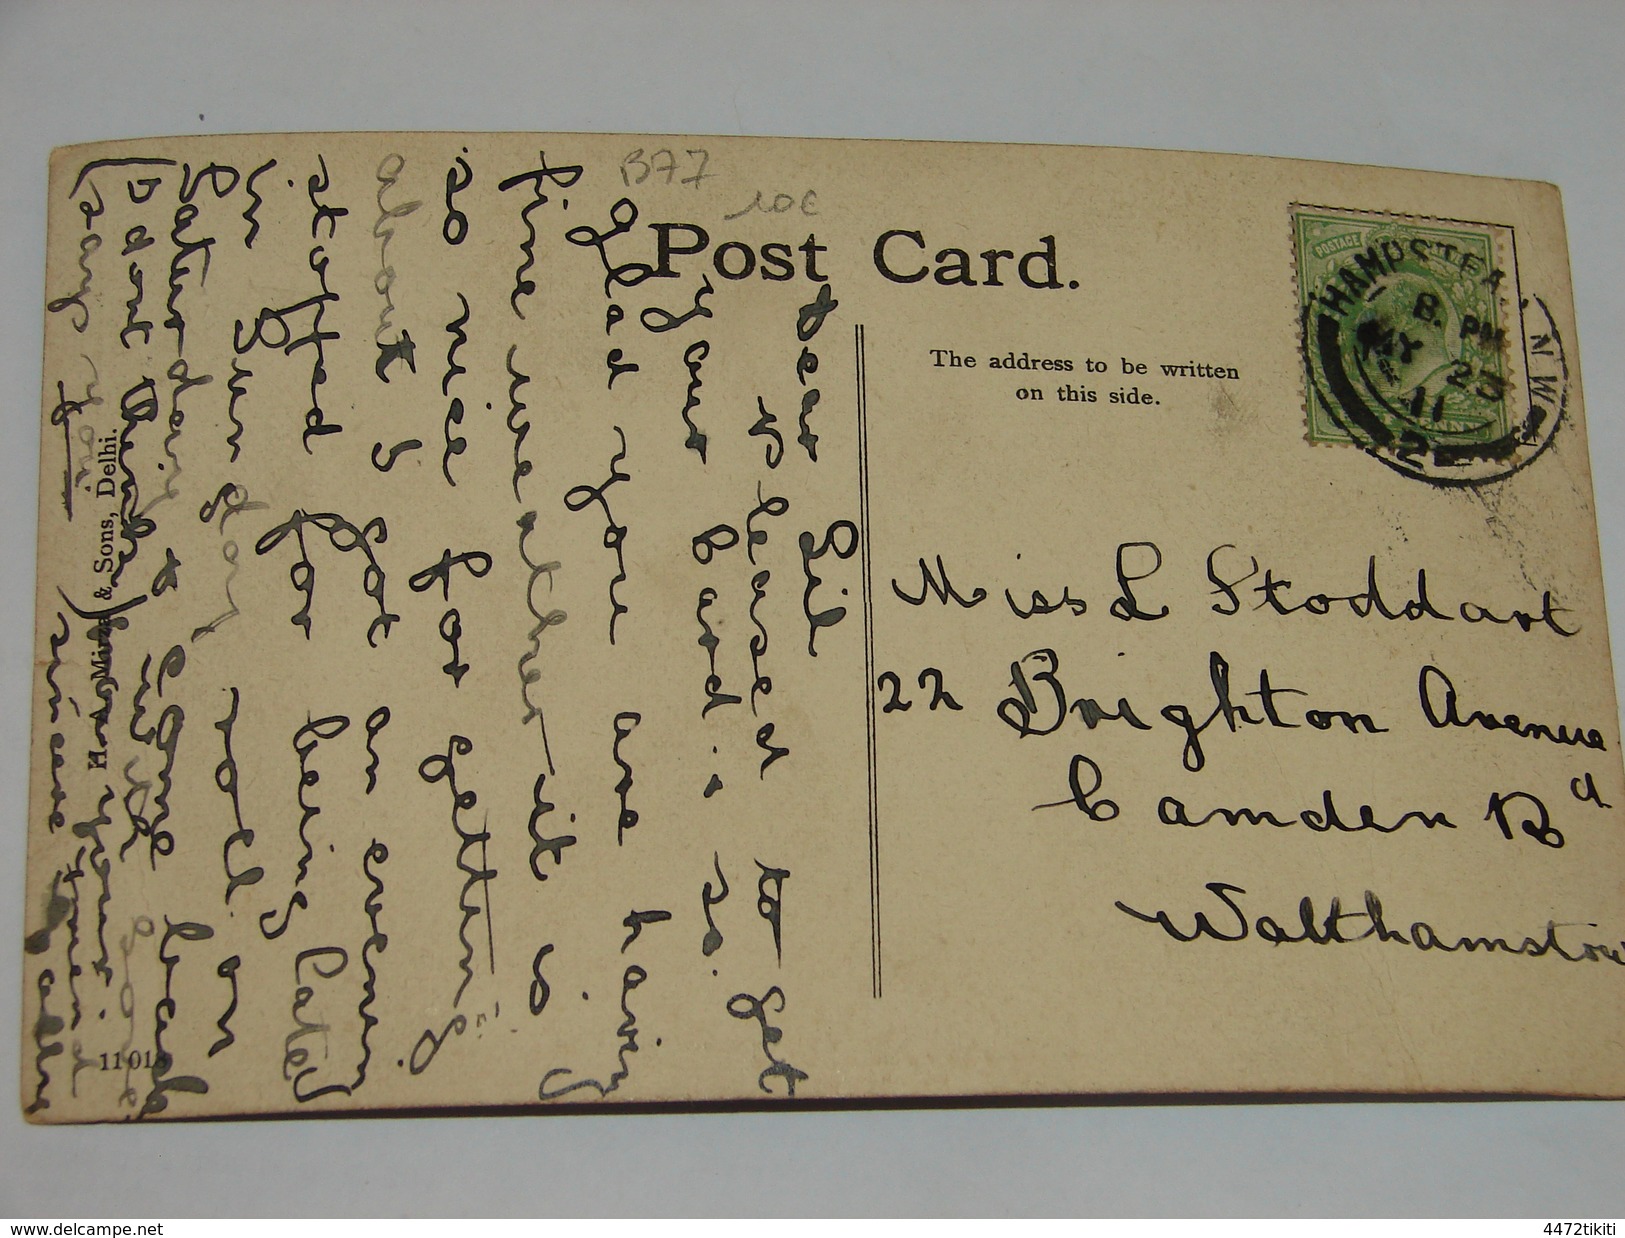 B77
10c
Post Card.
The address to be written
on this side.
HAMPSTEAD N.W
8. PM
MY 23
11
2
POSTAGE
Miss L Stoddart
22 Brighton Avenue
Camden Rd
Walthamstow
Dear Lil
Pleased to get
your card. so
glad you are having
fine weather it is
so nice for getting
about I got an evening
stopped for being late
in Sunday well on
Saturday come back
(I dont think)
sincere friend
yours
H. A. Mirza & Sons, Delhi.
11018
www.delcampe.net
4472tikiti